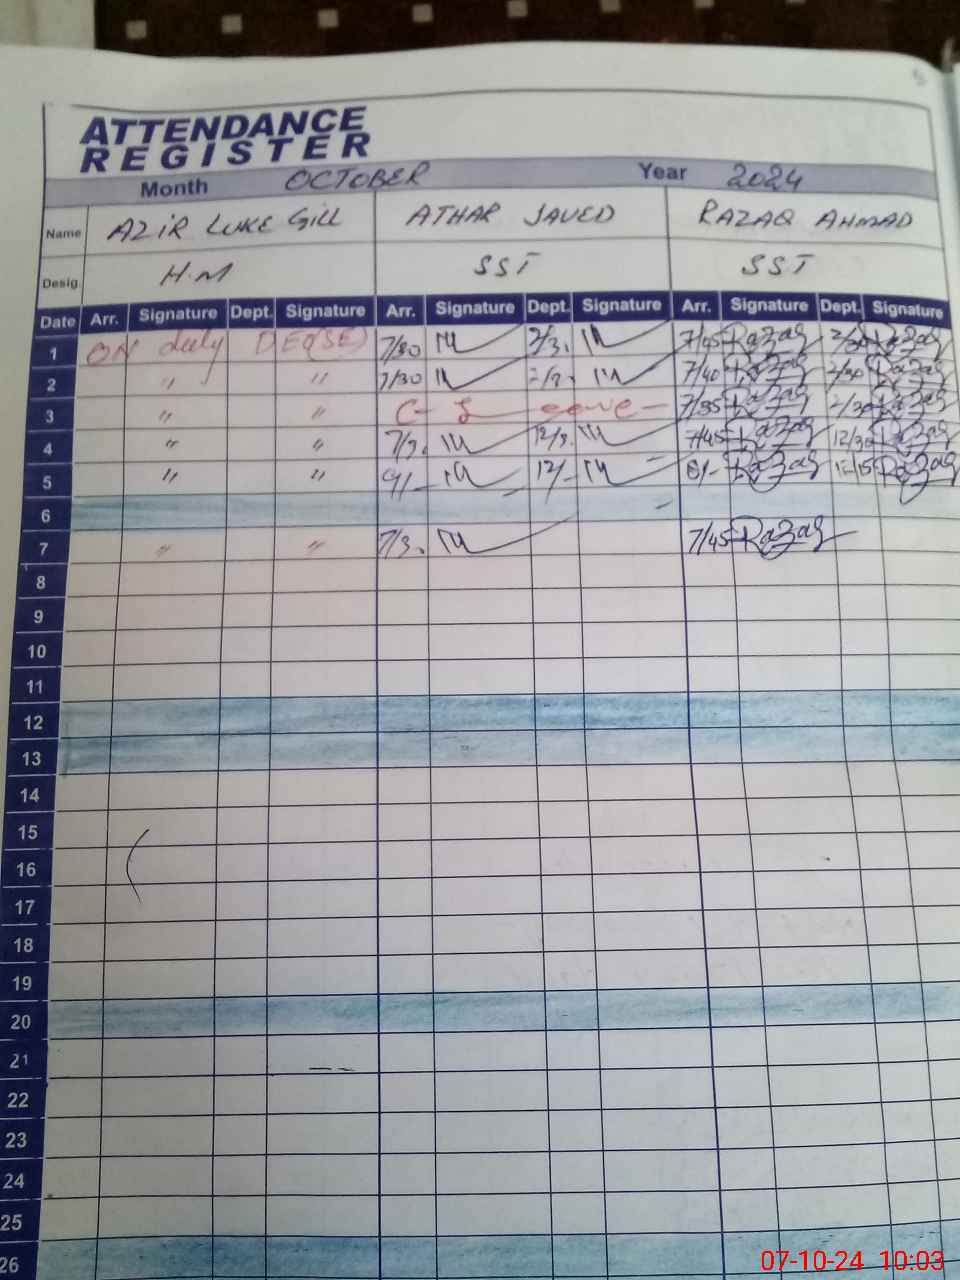 ATTENDANCE
REGISTER
Month OCTOBER Year 2024
Name AZIR LUKE GILL ATHAR JAVED RAZAQ AHMAD
Desig. H.M SST SST
Date Arr. Signature Dept. Signature Arr. Signature Dept. Signature Arr. Signature Dept. Signature
1 ON duty DEO(SE) 7/30 2/3. 7/45 Razaq 2/30 Razaq
2 " " 7/30 7/40 Razaq 2/30 Razaq
3 " " C- L eave- 7/35 Razaq 2/30 Razaq
4 " " 7/3. 12/3. 7/45 Razaq 12/30 Razaq
5 " " 9/- 12/- Razaq Razaq
6
7 " " 7/3. 7/45 Razaq
8
9
10
11
12
13
14
15
16
17
18
19
20
21
22
23
24
25
26
07-10-24 10:03